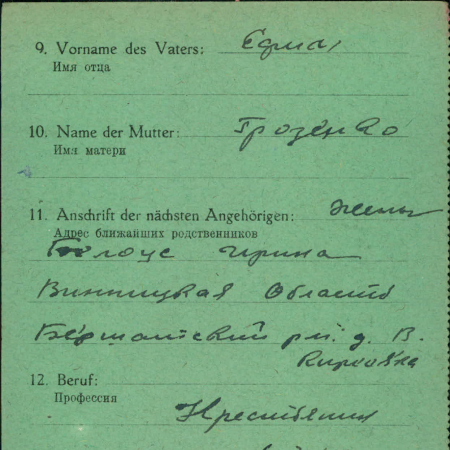 9. Vorname des Vaters: Ефим
Имя отца
10. Name der Mutter: Грозенко
Имя матери
11. Anschrift der nächsten Angehörigen: жены
Адрес ближайших родственников
Белоус Ирина
Винницкая Область
Бершатский д. В.
12. Beruf:
Профессия
Крестьянин